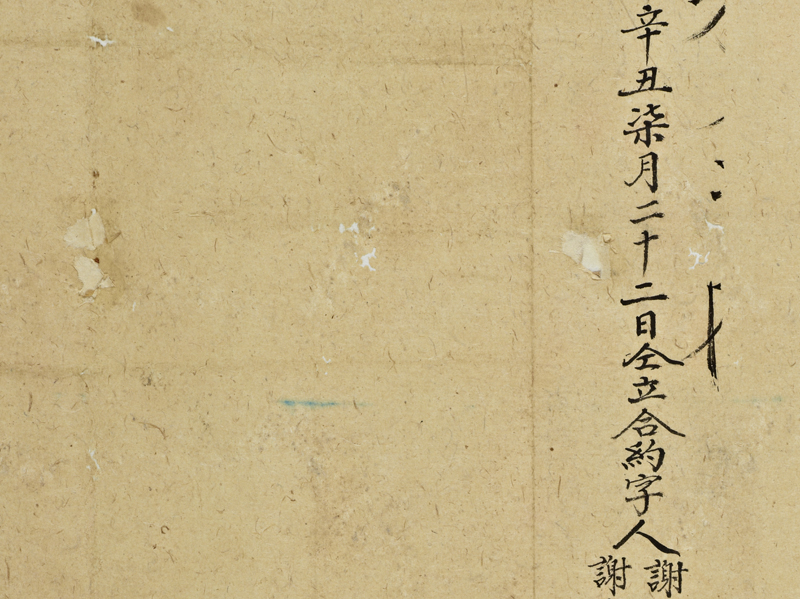 辛丑柒月二十二日仝立合約字人
謝
謝